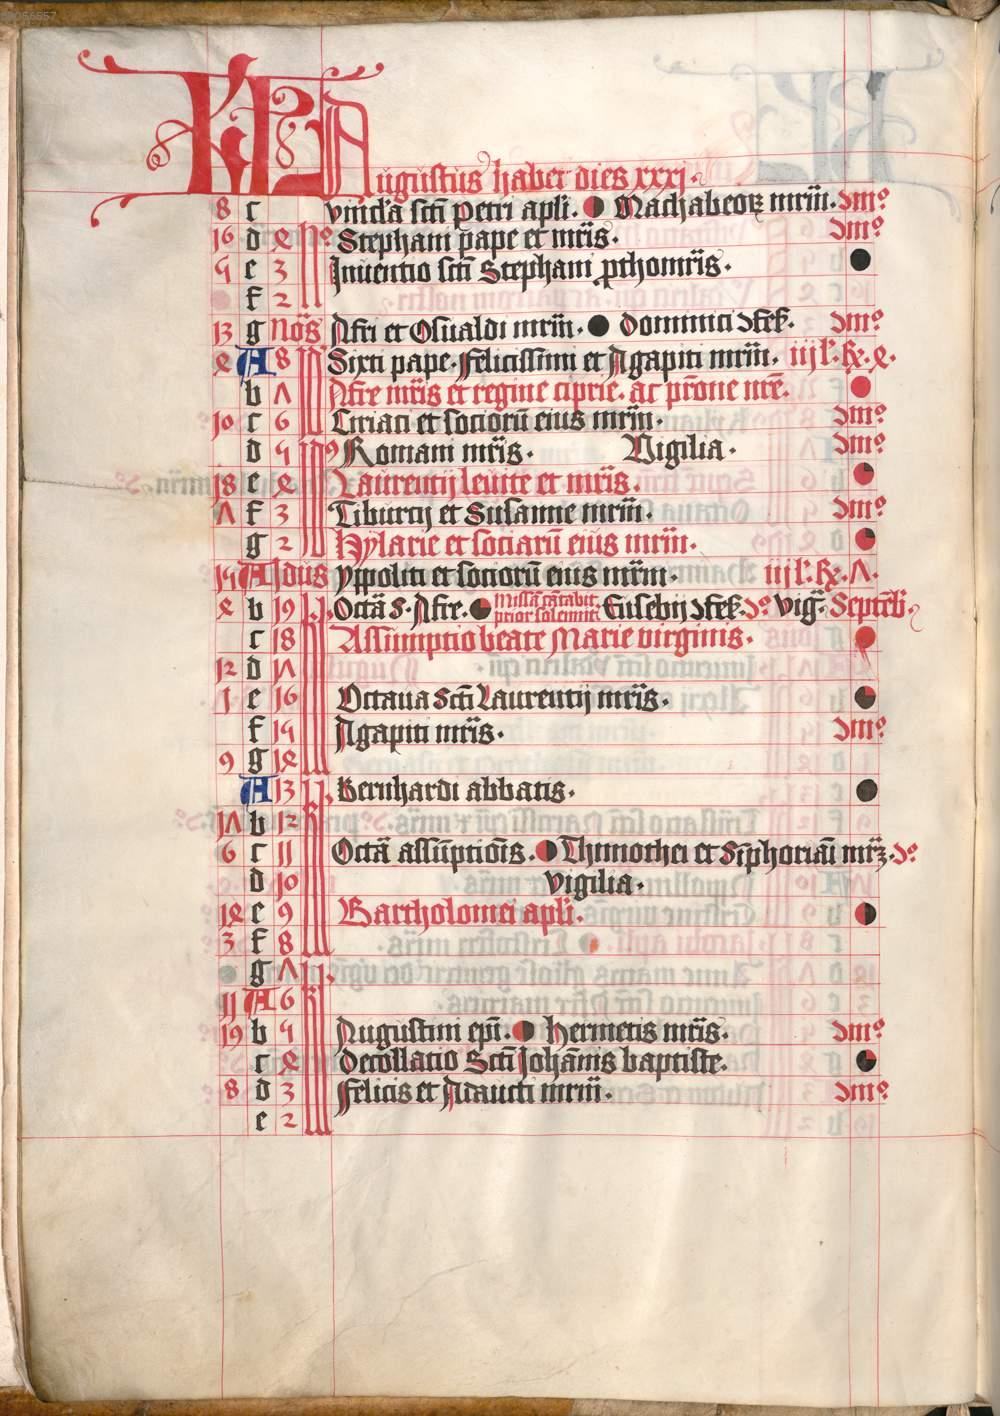 KL Augustus habet dies xxxj.
8 c vincla scti petri apli. Machabeoꝝ mrm̄. Jmº
16 d 4 Nº Stephani pape et mris. Jmº
5 e 3 Inventio scti Stephani ꝓthomris.
f 2
13 g Noˢ Afri et Osualdi mrm̄. Dominici ɔfeſ. Jmº
2 A 8 Sixti pape. felicissimi et Agapiti mrm̄. iij l. R. 4.
b 7 Afre mris et regine ciprie. ac prone nre.
10 c 6 Ciriaci et socioru eius mrm̄. Jmº
d 5 Romani mris. Vigilia. Jmº
18 e 4 Laurentij levite et mris.
7 f 3 Tiburcij et Susanne mrm̄. Jmº
g 2 Hylarie et sociaru eius mrm̄.
15 A Idus yppoliti et socioru eius mrm̄. iij l. R. 7.
4 b 19 Octa S. Afre. Missa cantabit. prior solemnit. Eusebij ɔfeſ. Jº vig. Septeb.
c 18 Assumptio beate Marie virginis.
12 d 17
1 e 16 Octava Scti Laurentij mris.
f 15 Agapiti mris. Jmº
9 g 14
A 13 Bernhardi abbatis.
17 b 12
6 c 11 Octa assuptiois. Thimothei et Siphoriai mrz. Jº
d 10 Vigilia.
14 e 9 Bartholomei apli.
3 f 8
g 7
11 A 6
19 b 5 Augustini epi. Hermetis mris. Jmº
c 4 Decollatio Scti Johannis baptiste.
8 d 3 Felicis et Adaucti mrm̄. Jmº
e 2